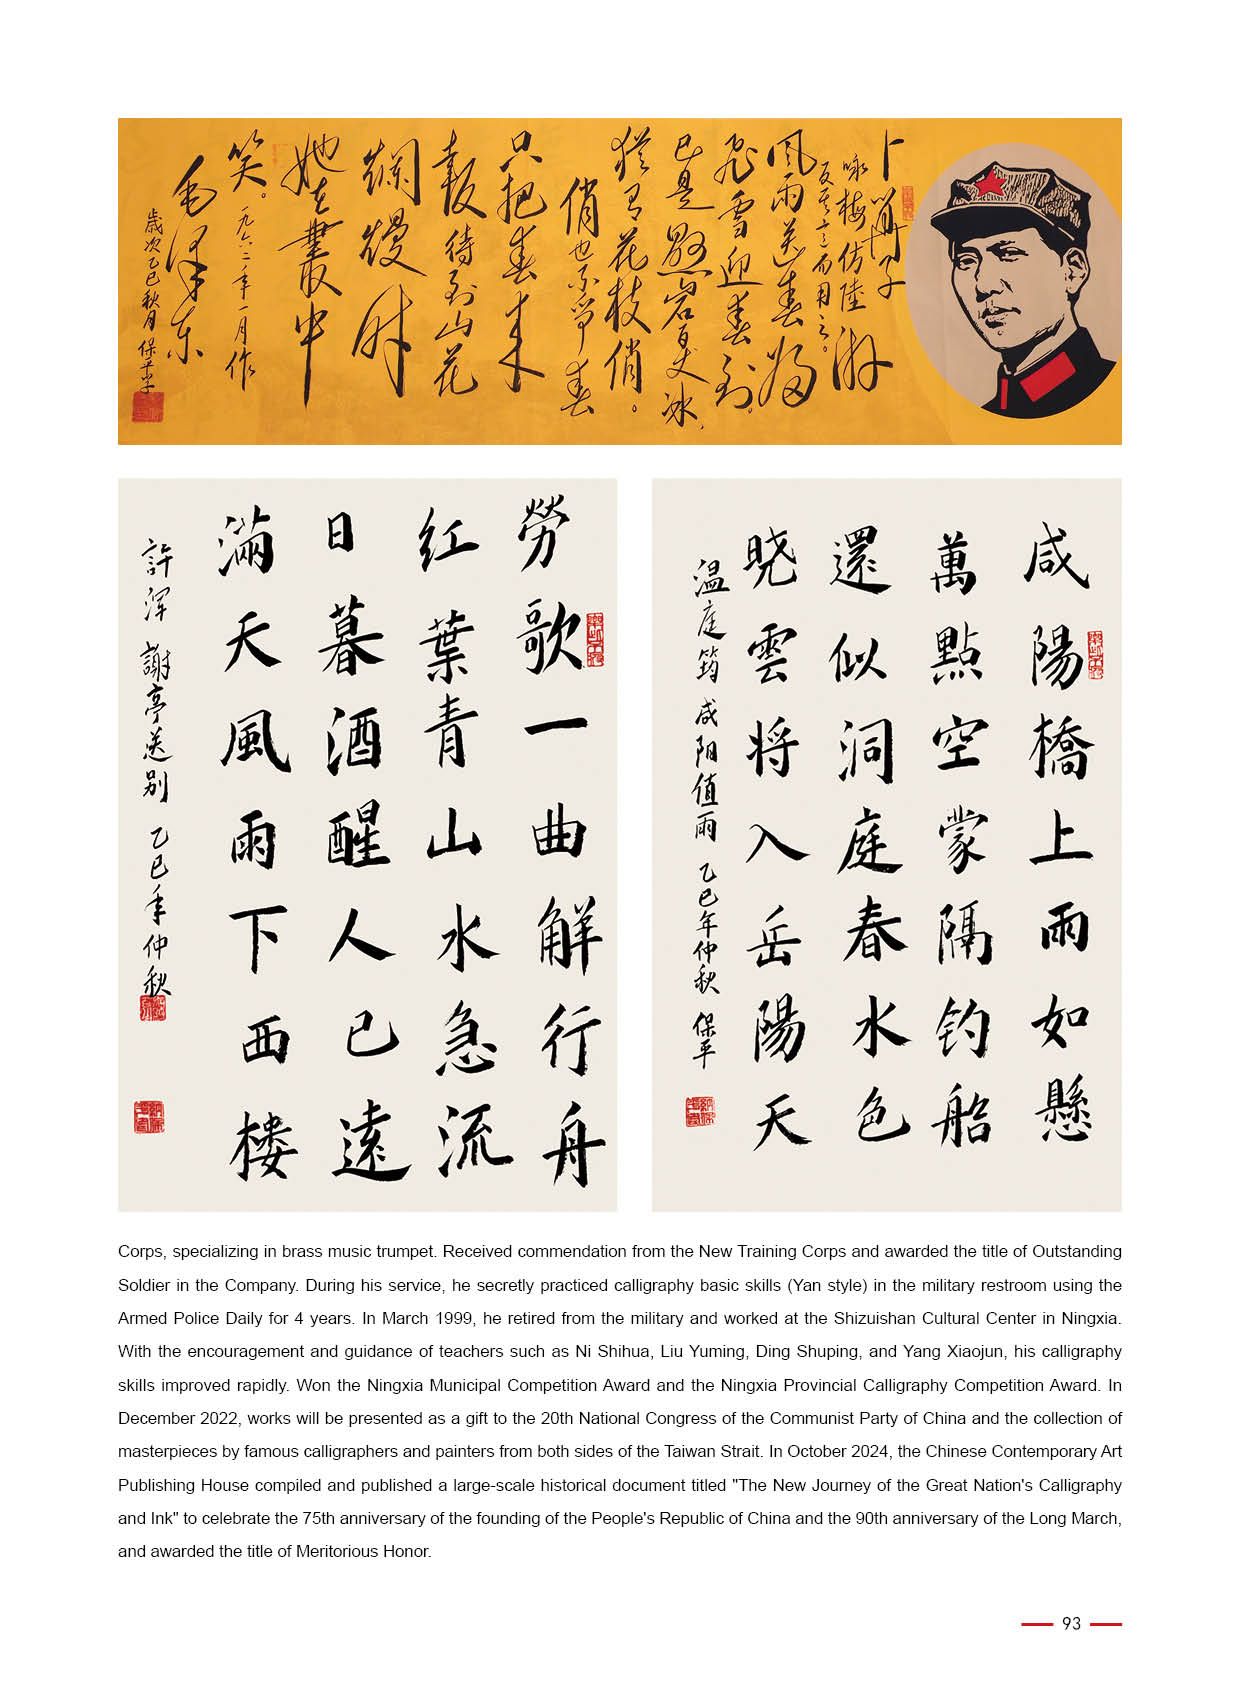 卜算子
咏梅仿陸游
反其意而用之。
風雨送春歸
飛雪迎春到。
已是懸岩百丈冰,
犹有花枝俏。
俏也不爭春
只把春来
報待到山花
爛熳時
她在叢中
笑。
一九六二年一月作
毛澤东
歲次乙巳秋月保平書
勞歌一曲解行舟
红葉青山水急流
日暮酒醒人已遠
滿天風雨下西楼
許渾 謝亭送别 乙巳年仲秋
咸陽橋上雨如懸
萬點空蒙隔钓船
還似洞庭春水色
晓雲将入岳陽天
温庭筠 咸阳值雨 乙巳年仲秋 保平
Corps, specializing in brass music trumpet. Received commendation from the New Training Corps and awarded the title of Outstanding
Soldier in the Company. During his service, he secretly practiced calligraphy basic skills (Yan style) in the military restroom using the
Armed Police Daily for 4 years. In March 1999, he retired from the military and worked at the Shizuishan Cultural Center in Ningxia.
With the encouragement and guidance of teachers such as Ni Shihua, Liu Yuming, Ding Shuping, and Yang Xiaojun, his calligraphy
skills improved rapidly. Won the Ningxia Municipal Competition Award and the Ningxia Provincial Calligraphy Competition Award. In
December 2022, works will be presented as a gift to the 20th National Congress of the Communist Party of China and the collection of
masterpieces by famous calligraphers and painters from both sides of the Taiwan Strait. In October 2024, the Chinese Contemporary Art
Publishing House compiled and published a large-scale historical document titled "The New Journey of the Great Nation's Calligraphy
and Ink" to celebrate the 75th anniversary of the founding of the People's Republic of China and the 90th anniversary of the Long March,
and awarded the title of Meritorious Honor.
93